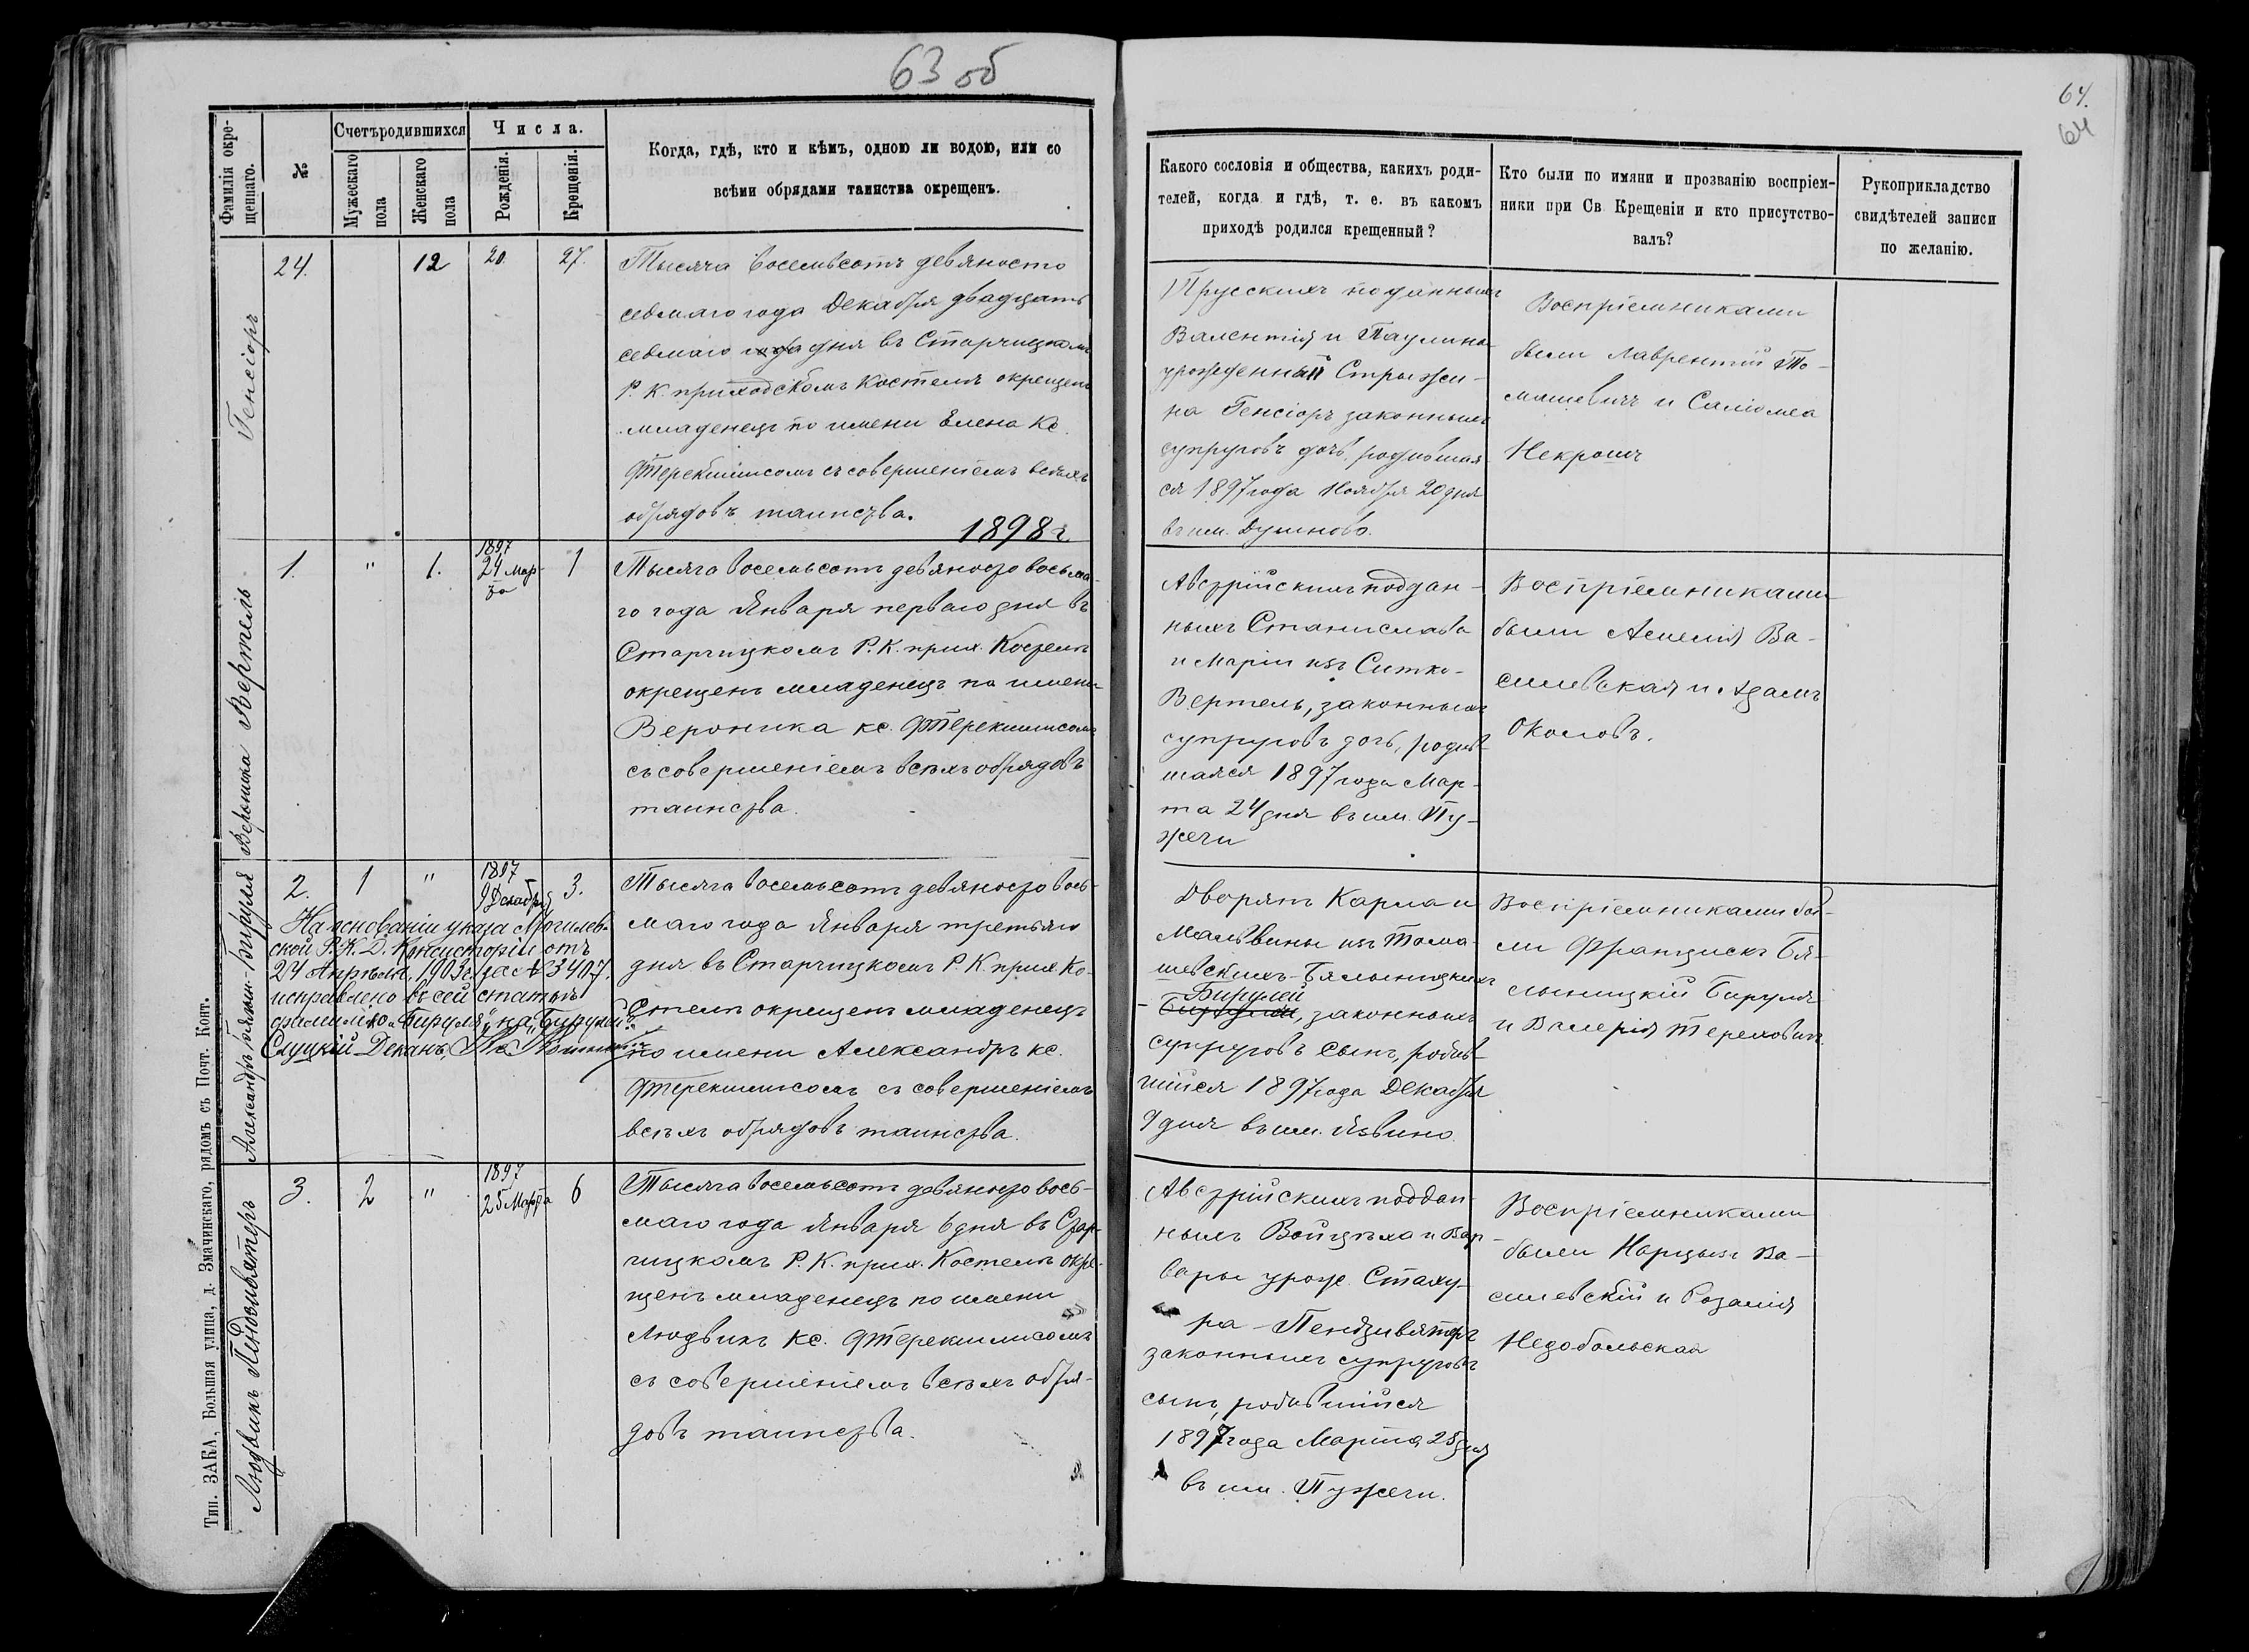 63 об
Фамилія окре-
щеннаго.
№
Счетъ родившихся
Мужескаго
пола
Женскаго
пола
Числа.
Рожденія.
Крещенія.
Когда, гдѣ, кто и кѣмъ, одною ли водою, или со
всѣми обрядами таинства окрещенъ.
Генсіоръ
24.
12
20
27.
Тысяча восемьсотъ девяносто
седьмаго года Декабря двадцать
седьмаго года дня въ Старчицкомъ
Р. К. приходскомъ Костелѣ окрещенъ
младенецъ по имени Елена Кс.
съ совершеніемъ всѣхъ
обрядовъ таинства.
1898 г.
Вероника Вертель
1.
"
1.
1897
24 Мар-
та
1
Тысяча восемьсотъ девяносто восьма-
го года Января перваго дня въ
Старчицкомъ Р. К. прих. Костелѣ
окрещенъ младенецъ по имени
Вероника кс.
съ совершеніемъ всѣхъ обрядовъ
таинства.
2.
1
"
1897
9 Декабря
3.
На основаніи указа Могилев-
ской Р. К. Д. Консисторіи отъ
24 Апрѣля 1903 г. за № 3407.
исправлено въ сей статьѣ
фамилію
Слуцкій Деканъ, Кс.
Тысяча восемьсотъ девяносто вось-
маго года Января третьяго
дня въ Старчицкомъ Р. К. прих. Ко-
стелѣ окрещенъ младенецъ
по имени Александръ кс.
съ совершеніемъ
всѣхъ обрядовъ таинства.
Людвикъ Пендзивятръ
3.
2
"
1897
25 Марта
6
Тысяча восемьсотъ девяносто вось-
маго года Января 6 дня въ Стар-
чицкомъ Р. К. прих. Костелѣ окре-
щенъ младенецъ по имени
Людвикъ кс.
съ совершеніемъ всѣхъ обря-
довъ таинства.
Тип. ЗАКА, Большая улица, д. Змачинскаго, рядомъ съ Почт. Конт.
64.
64
Какого сословія и общества, какихъ роди-
телей, когда и гдѣ, т. е. въ какомъ
приходѣ родился крещенный?
Кто были по имяни и прозванію воспріем-
ники при Св. Крещеніи и кто присутство-
валъ?
Рукоприкладство
свидѣтелей записи
по желанію.
Прусскихъ поданныхъ
Валентія и Паулины
урожденный Стрыжи-
на Генсіоръ законныхъ
супруговъ дочь, родившая
ся 1897 года Ноября 20 дня
въ им. Душново.
Воспріемниками
были Лаврентій То-
машевичъ и Саліомеа
Некрошъ
Австрійскихъ поддан-
ныхъ Станислава
и Маріи изъ Ситко-
Вертель, законныхъ
супруговъ дочь, родив-
шаяся 1897 года Мар-
та 24 дня въ им. Пу-
жечи
Воспріемниками
были Аме­лія Ва-
силевская и Адамъ
Околовъ.
Дворянъ Карла и
Мальвины изъ Тома-
шевскихъ-Бялыницкихъ
Бирулей
законныхъ
супруговъ сынъ, родив-
шійся 1897 года Декабря
9 дня въ им. Язвино
Воспріемниками бы-
ли Францискъ Бя-
лыницкій Бируля
и Валерія Тереховичъ
Австрійскихъ поддан-
ныхъ Войцѣха и Вар-
вары урож. Стаху-
ра - Пендзивятръ
законныхъ супруговъ
сынъ, родившійся
1897 года Марта 25 дня
въ им. Пужечи.
Воспріемниками
были Нарцызъ Ва-
силевскій и Розалія
Недобольская